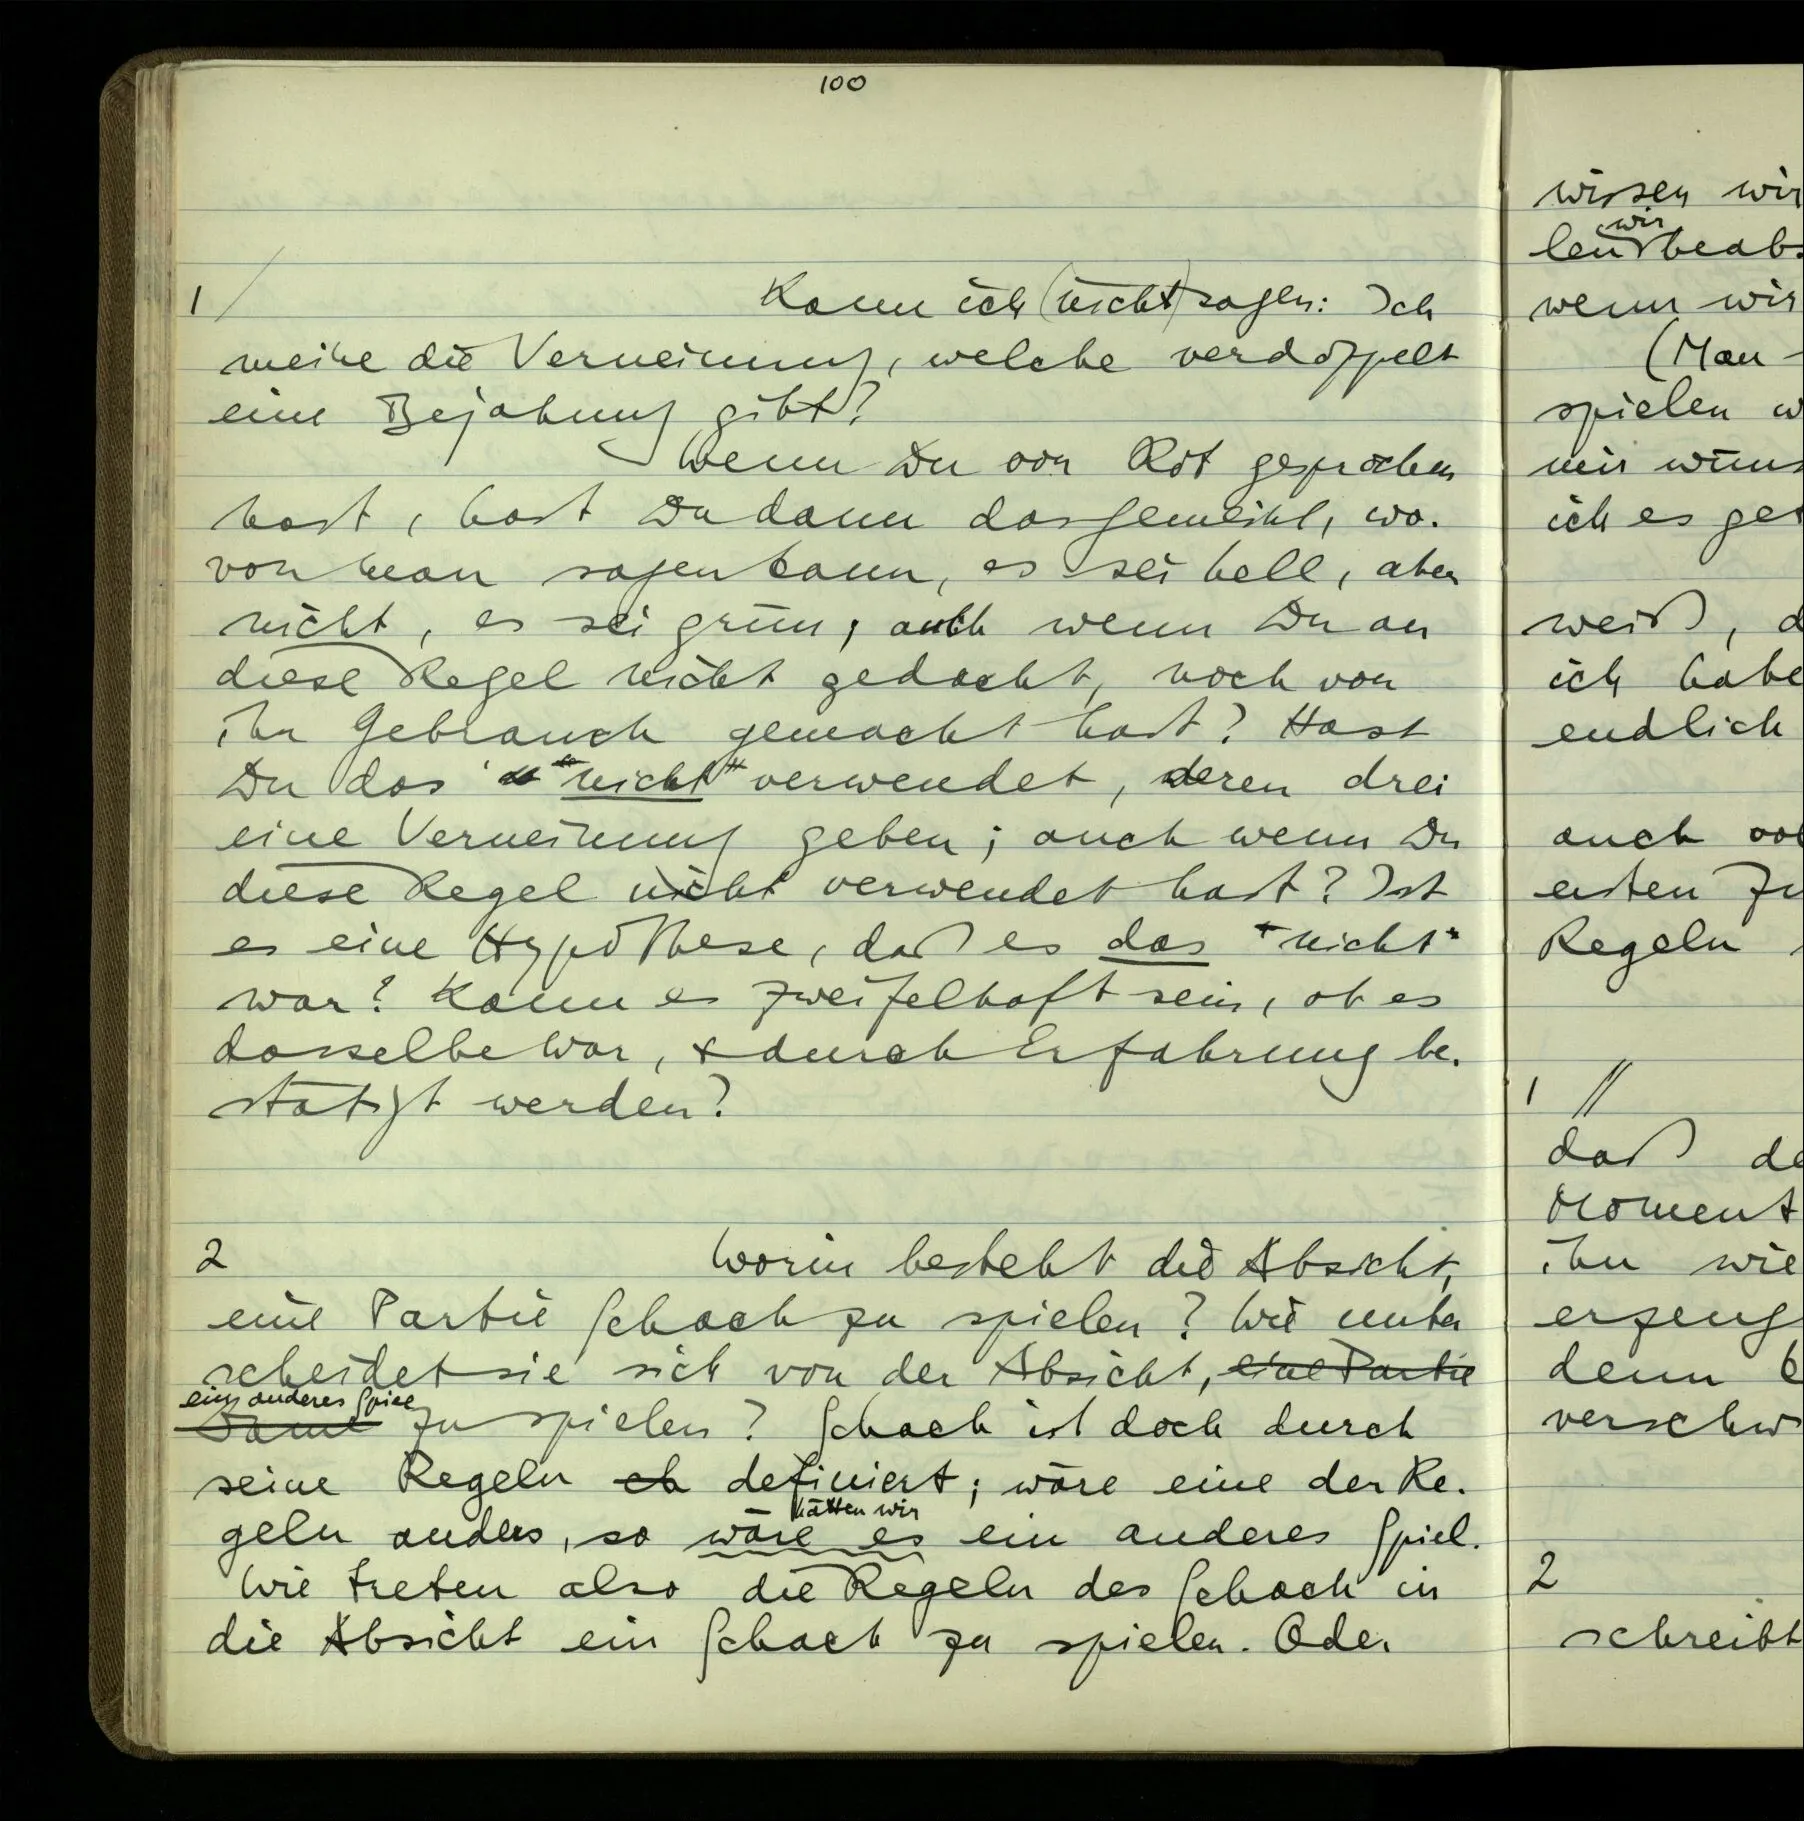 100
1 / Kann ich (nicht) sagen: Ich
meine die Verneinung, welche verdoppelt
eine Bejahung gibt?
Wenn Du von Rot gesprochen
hast, hast Du dann das gemeint, wo-
von man sagen kann, es sei hell, aber
nicht, es sei grün; auch wenn Du an
diese Regel nicht gedacht, noch von
ihr Gebrauch gemacht hast? Hast
Du das "nicht" verwendet, deren drei
eine Verneinung geben; auch wenn Du
diese Regel nicht verwendet hast? Ist
es eine Hypothese, daß es das "nicht"
war? Kann es zweifelhaft sein, ob es
dasselbe war, & durch Erfahrung be-
stätigt werden?
2 Worin besteht die Absicht,
eine Partie Schach zu spielen? Wie unter
scheidet sie sich von der Absicht, eine Partie
ein anderes Spiel
Dame zu spielen? Schach ist doch durch
seine Regeln ch definiert; wäre eine der Re-
hätten wir
geln anders, so wäre es ein anderes Spiel.
Wie treten also die Regeln des Schach in
die Absicht ein Schach zu spielen. Oder
wissen wir
wir
len beab-
wenn wir
(Man
spielen w
mir wüns
ich es ge
weiß, d
ich habe
endlich
auch
ersten Zu
Regeln
1 //
daß de
Moment
ihn wie
erzeug
denn
verschw
2
schreibt